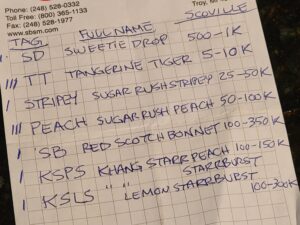 Phone: (248) 528-0332
Toll Free: (800) 365-1133
Fax: (248) 528-1977
www.sbam.com
Troy,
TAG FULL NAME SCOVILLE
I SD SWEETIE DROP 500-1K
III TT TANGERINE TIGER 5-10K
I STRIPEY SUGAR RUSH STRIPEY 25-50K
III PEACH SUGAR RUSH PEACH 50-100K
I SB RED SCOTCH BONNET 100-350K
I KSPS KHANG STARR PEACH STARRBURST 100-150K
I KSLS " " LEMON STARRBURST 100-300K